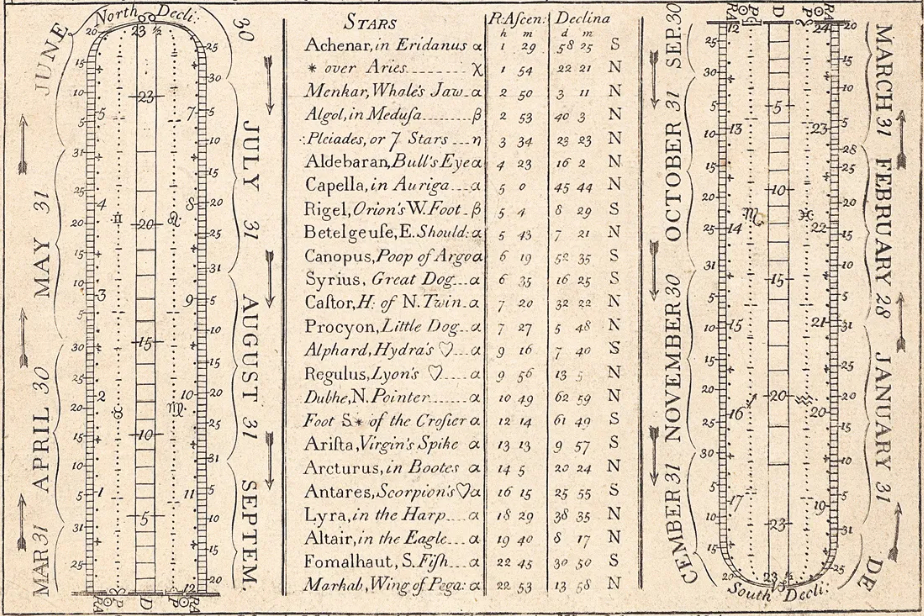 North Decli:
JUNE
MAY 31
APRIL 30
MAR 31
30
JULY 31
AUGUST 31
SEPTEM.
STARS R.Ascen: Declina
h m d m
Achenar, in Eridanus α 1 29 58 25 S
* over Aries χ 1 54 22 21 N
Menkar, Whale's Jaw α 2 50 3 11 N
Algol, in Medusa β 2 53 40 3 N
Pleiades, or 7 Stars η 3 34 23 23 N
Aldebaran, Bull's Eye α 4 23 16 2 N
Capella, in Auriga α 5 0 45 44 N
Rigel, Orion's W. Foot β 5 4 8 29 S
Betelgeuse, E. Should: α 5 43 7 21 N
Canopus, Poop of Argo α 6 19 52 35 S
Syrius, Great Dog α 6 35 16 25 S
Castor, H. of N. Twin α 7 20 32 22 N
Procyon, Little Dog α 7 27 5 48 N
Alphard, Hydra's ♡ α 9 16 7 40 S
Regulus, Lyon's ♡ α 9 56 13 5 N
Dubhe, N. Pointer α 10 49 62 59 N
Foot S * of the Crosier α 12 14 61 49 S
Arista, Virgin's Spike α 13 13 9 57 S
Arcturus, in Bootes α 14 5 20 24 N
Antares, Scorpion's ♡ α 16 15 25 55 S
Lyra, in the Harp α 18 29 38 35 N
Altair, in the Eagle α 19 40 8 17 N
Fomalhaut, S. Fish α 22 45 30 50 S
Markab, Wing of Pega: α 22 53 13 58 N
SEP. 30
OCTOBER 31
NOVEMBER 30
CEMBER 31
MARCH 31
FEBRUARY 28
JANUARY 31
DE
South Decli: